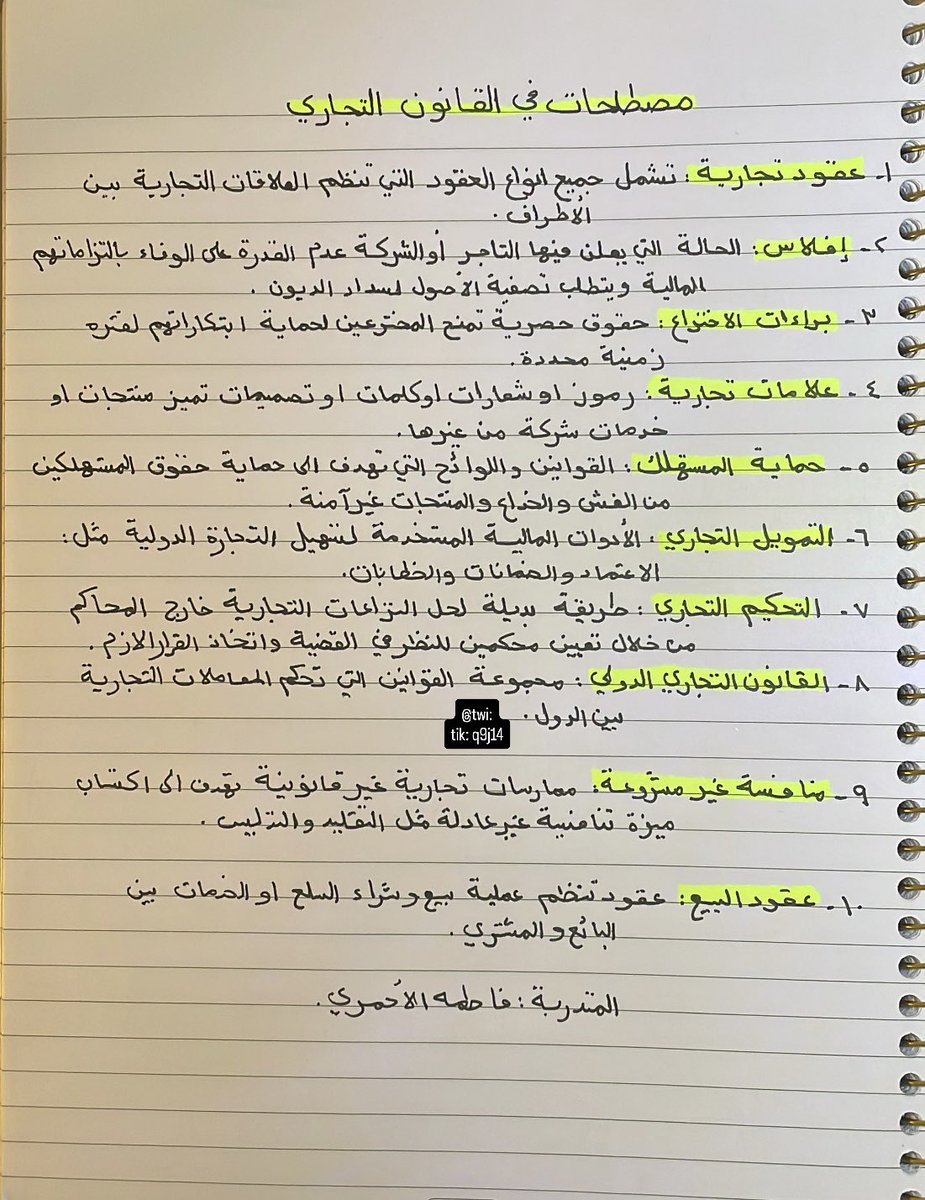 مصطلحات في القانون التجاري
١- عقود تجارية: تشمل جميع انواع العقود التي تنظم العلاقات التجارية بين
الأطراف.
٢- إفلاس: الحالة التي يعلن فيها التاجر أو الشركة عدم القدرة على الوفاء بالتزاماتهم
المالية ويتطلب تصفية الأصول لسداد الديون.
٣- براءات الاختراع: حقوق حصرية تمنح المخترعين لحماية ابتكاراتهم لفتره
زمنية محددة.
٤- علامات تجارية: رموز او شعارات اوكلمات او تصميمات تميز منتجات او
خدمات شركة من غيرها.
٥- حماية المستهلك: القوانين واللوائح التي تهدف الى حماية حقوق المستهلكين
من الغش والخداع والمنتجات غير آمنة.
٦- التمويل التجاري: الأدوات المالية المستخدمة لتسهيل التجارة الدولية مثل:
الاعتماد والضمانات والخطابات.
٧- التحكيم التجاري: طريقة بديلة لحل النزاعات التجارية خارج المحاكم
من خلال تعيين محكمين للنظر في القضية واتخاذ القرار الازم.
٨- القانون التجاري الدولي: مجموعة القوانين التي تحكم المعاملات التجارية
بين الدول.
@twi:
tik: q9j14
٩- منافسة غير مشروعة: ممارسات تجارية غير قانونية تهدف الى اكتساب
ميزة تنافسية غير عادلة مثل التقليد والتدليس.
١٠- عقود البيع: عقود تنظم عملية بيع وشراء السلع او الخدمات بين
البائع والمشتري.
المتدربة: فاطمه الأحمري.